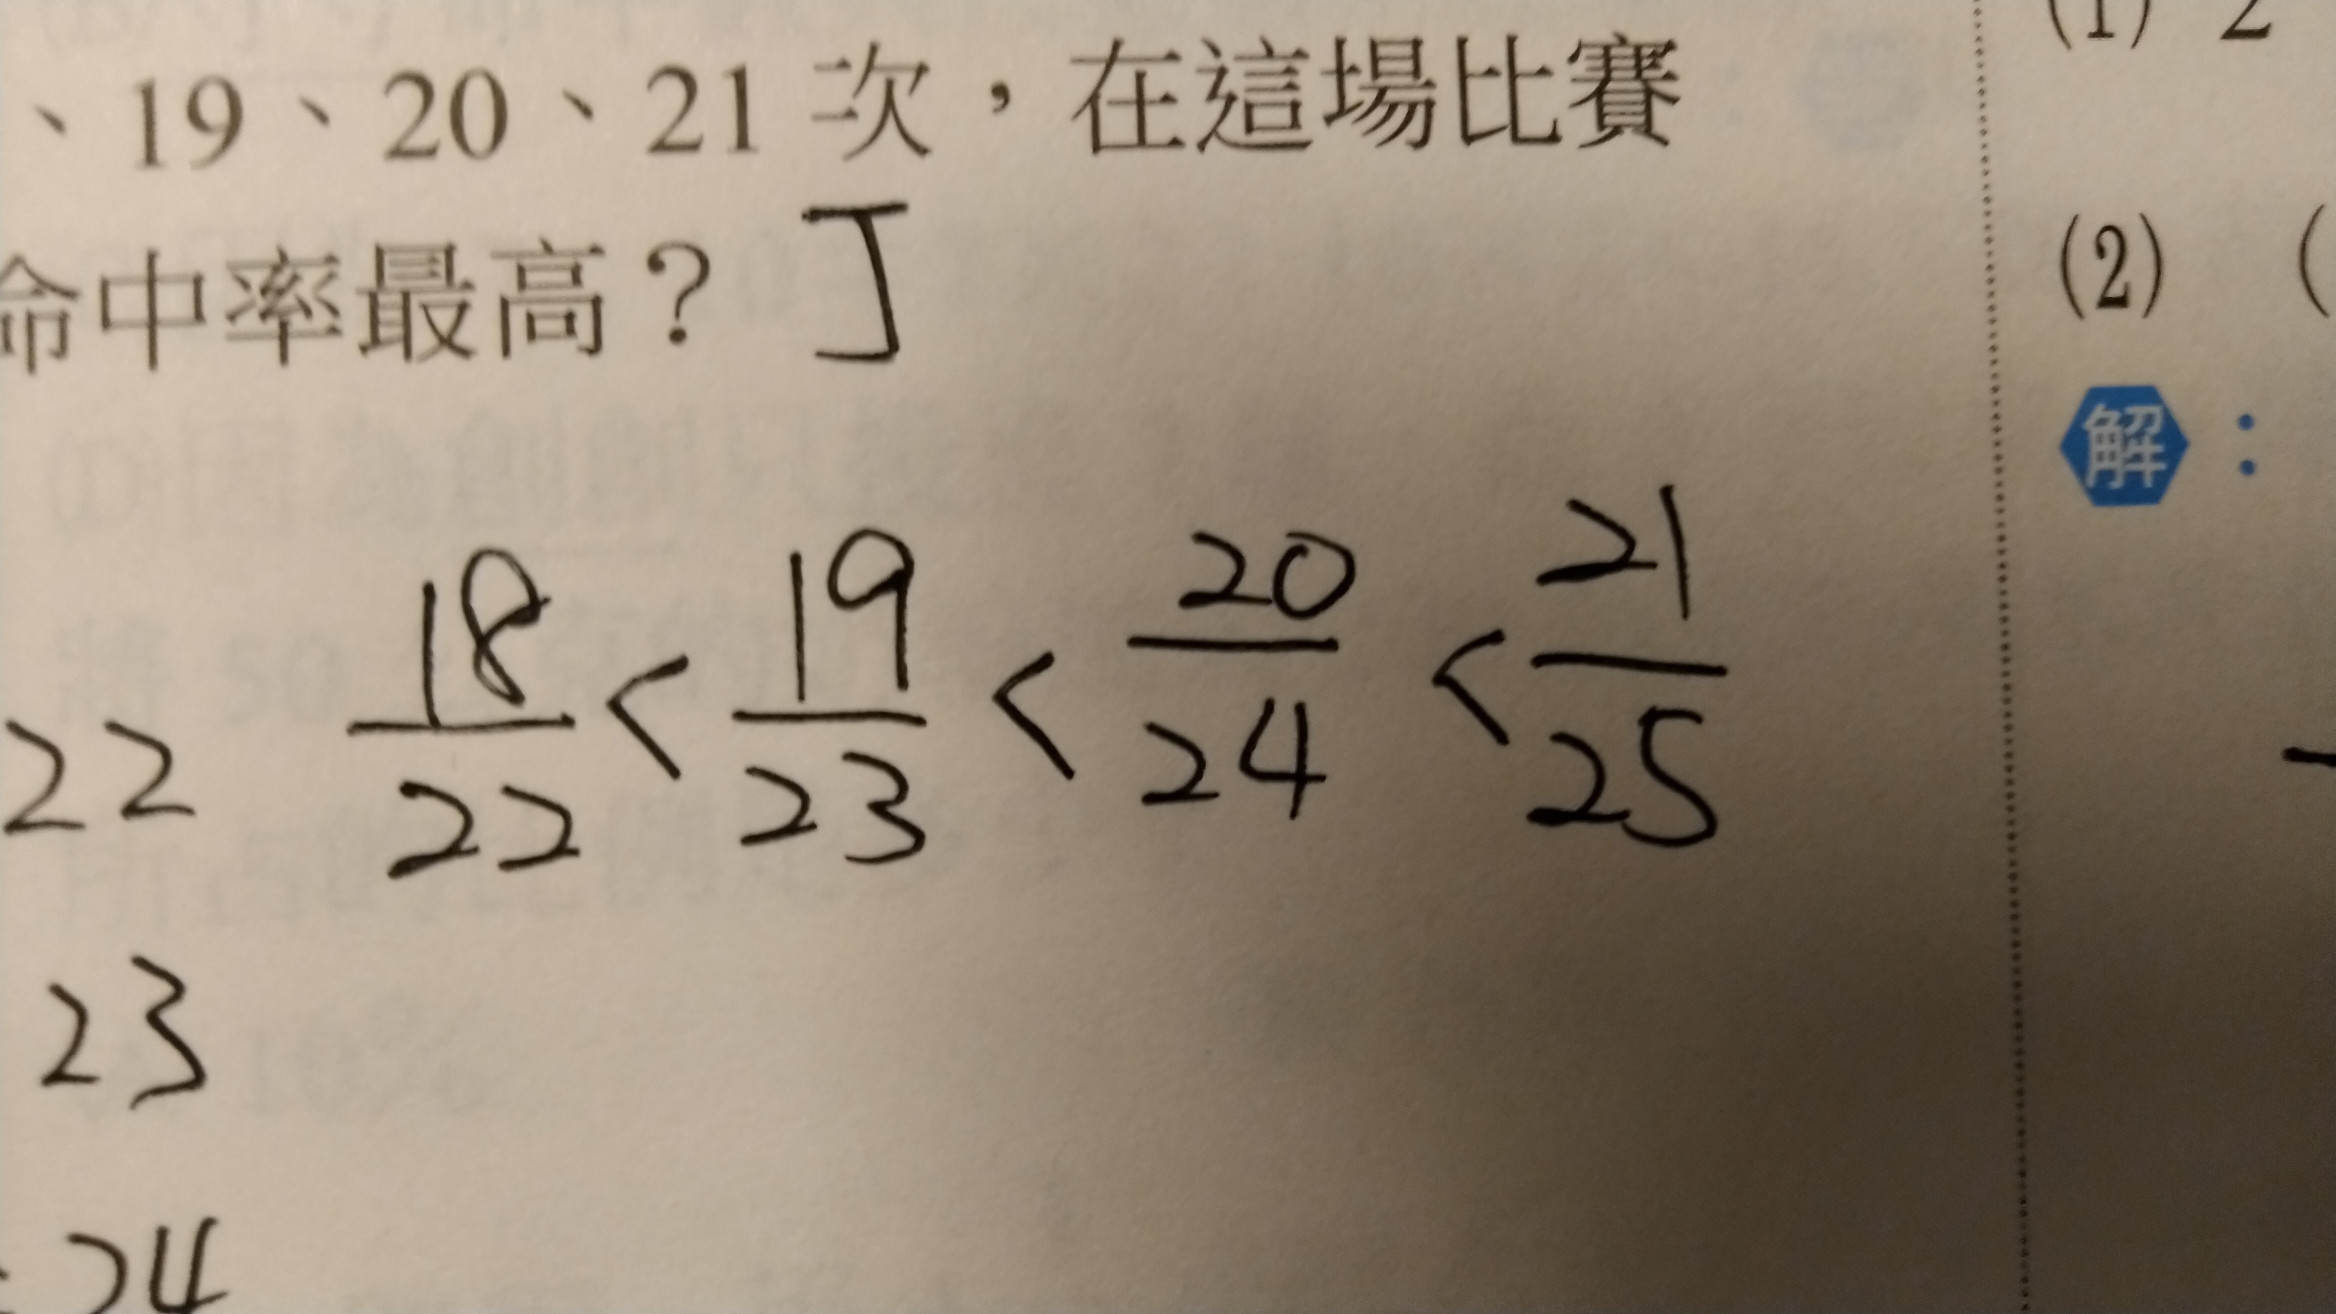 、19、20、21 次，在這場比賽
命中率最高？ 丁
22 18/22 < 19/23 < 20/24 < 21/25
23
24
(1) 2
(2) (
解：